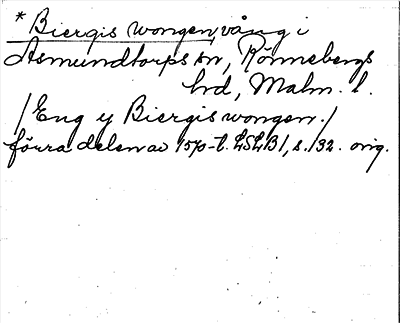 * Biergis wongen, vång i
Asmundtorps sn, Rönnebergs
hd, Malm. l.
/Eng y Biergis wongen./
förra delen av 1570-t. LSLB1, s. 132. orig.